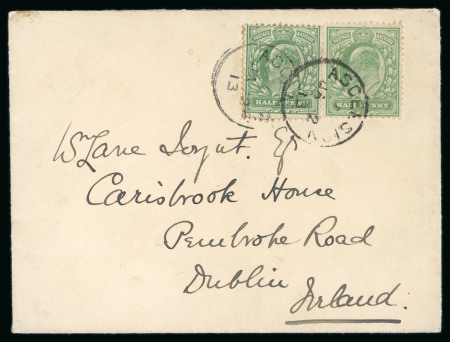 HALFPENNY HALFPENNY
ASCENSION
13
Wm Lane Joynt. Esq
Carisbrook House
Pembroke Road
Dublin
Ireland.